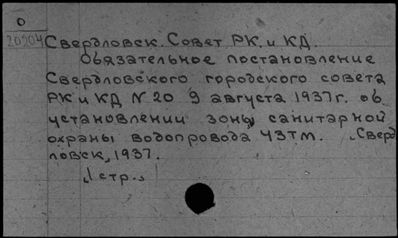 О
20904 Свердловск. Совет РК и КД.
Обязательное постановление
Свердловского городского совета
РК и КД N 20 9 августа 1937г. об
установлении зоны санитарной
охраны водопровода УЗТМ. Сверд
ловск, 1937.
1 стр.